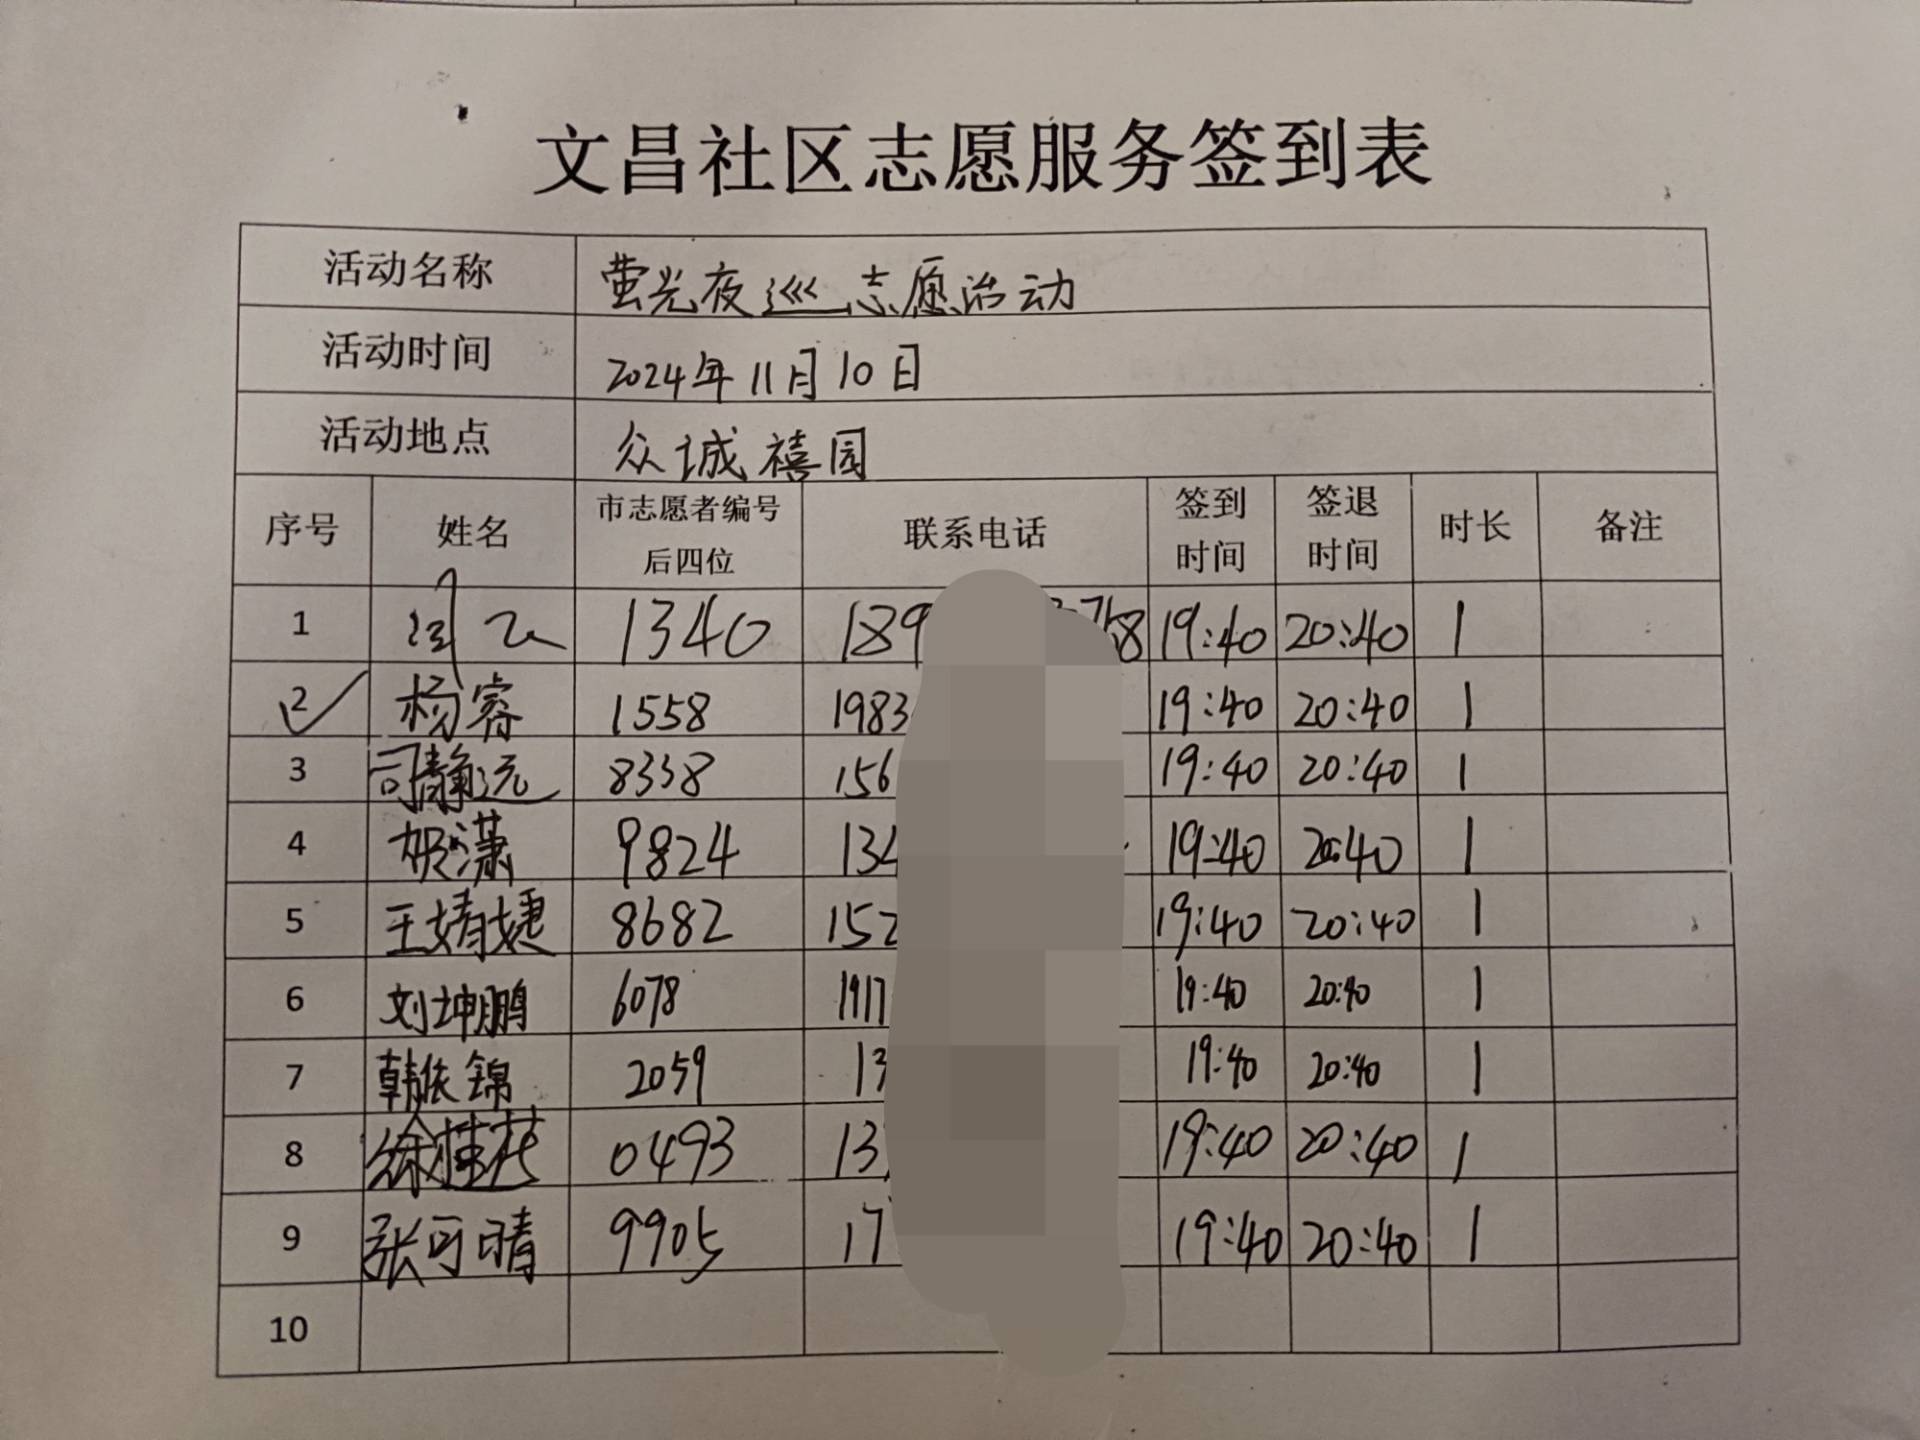 文昌社区志愿服务签到表
活动名称 萤光夜巡志愿活动
活动时间 2024年11月10日
活动地点 众诚禧园
序号 姓名 市志愿者编号后四位 联系电话 签到时间 签退时间 时长 备注
1 1340 189 758 19:40 20:40 1
2 杨睿 1558 1983 19:40 20:40 1
3 司静远 8338 156 19:40 20:40 1
4 胡潇 9824 134 19:40 20:40 1
5 王婧婕 8682 152 19:40 20:40 1
6 刘坤鹏 6078 1917 19:40 20:40 1
7 韩依锦 2059 13 19:40 20:40 1
8 徐桂花 0493 13 19:40 20:40 1
9 张可晴 9905 17 19:40 20:40 1
10